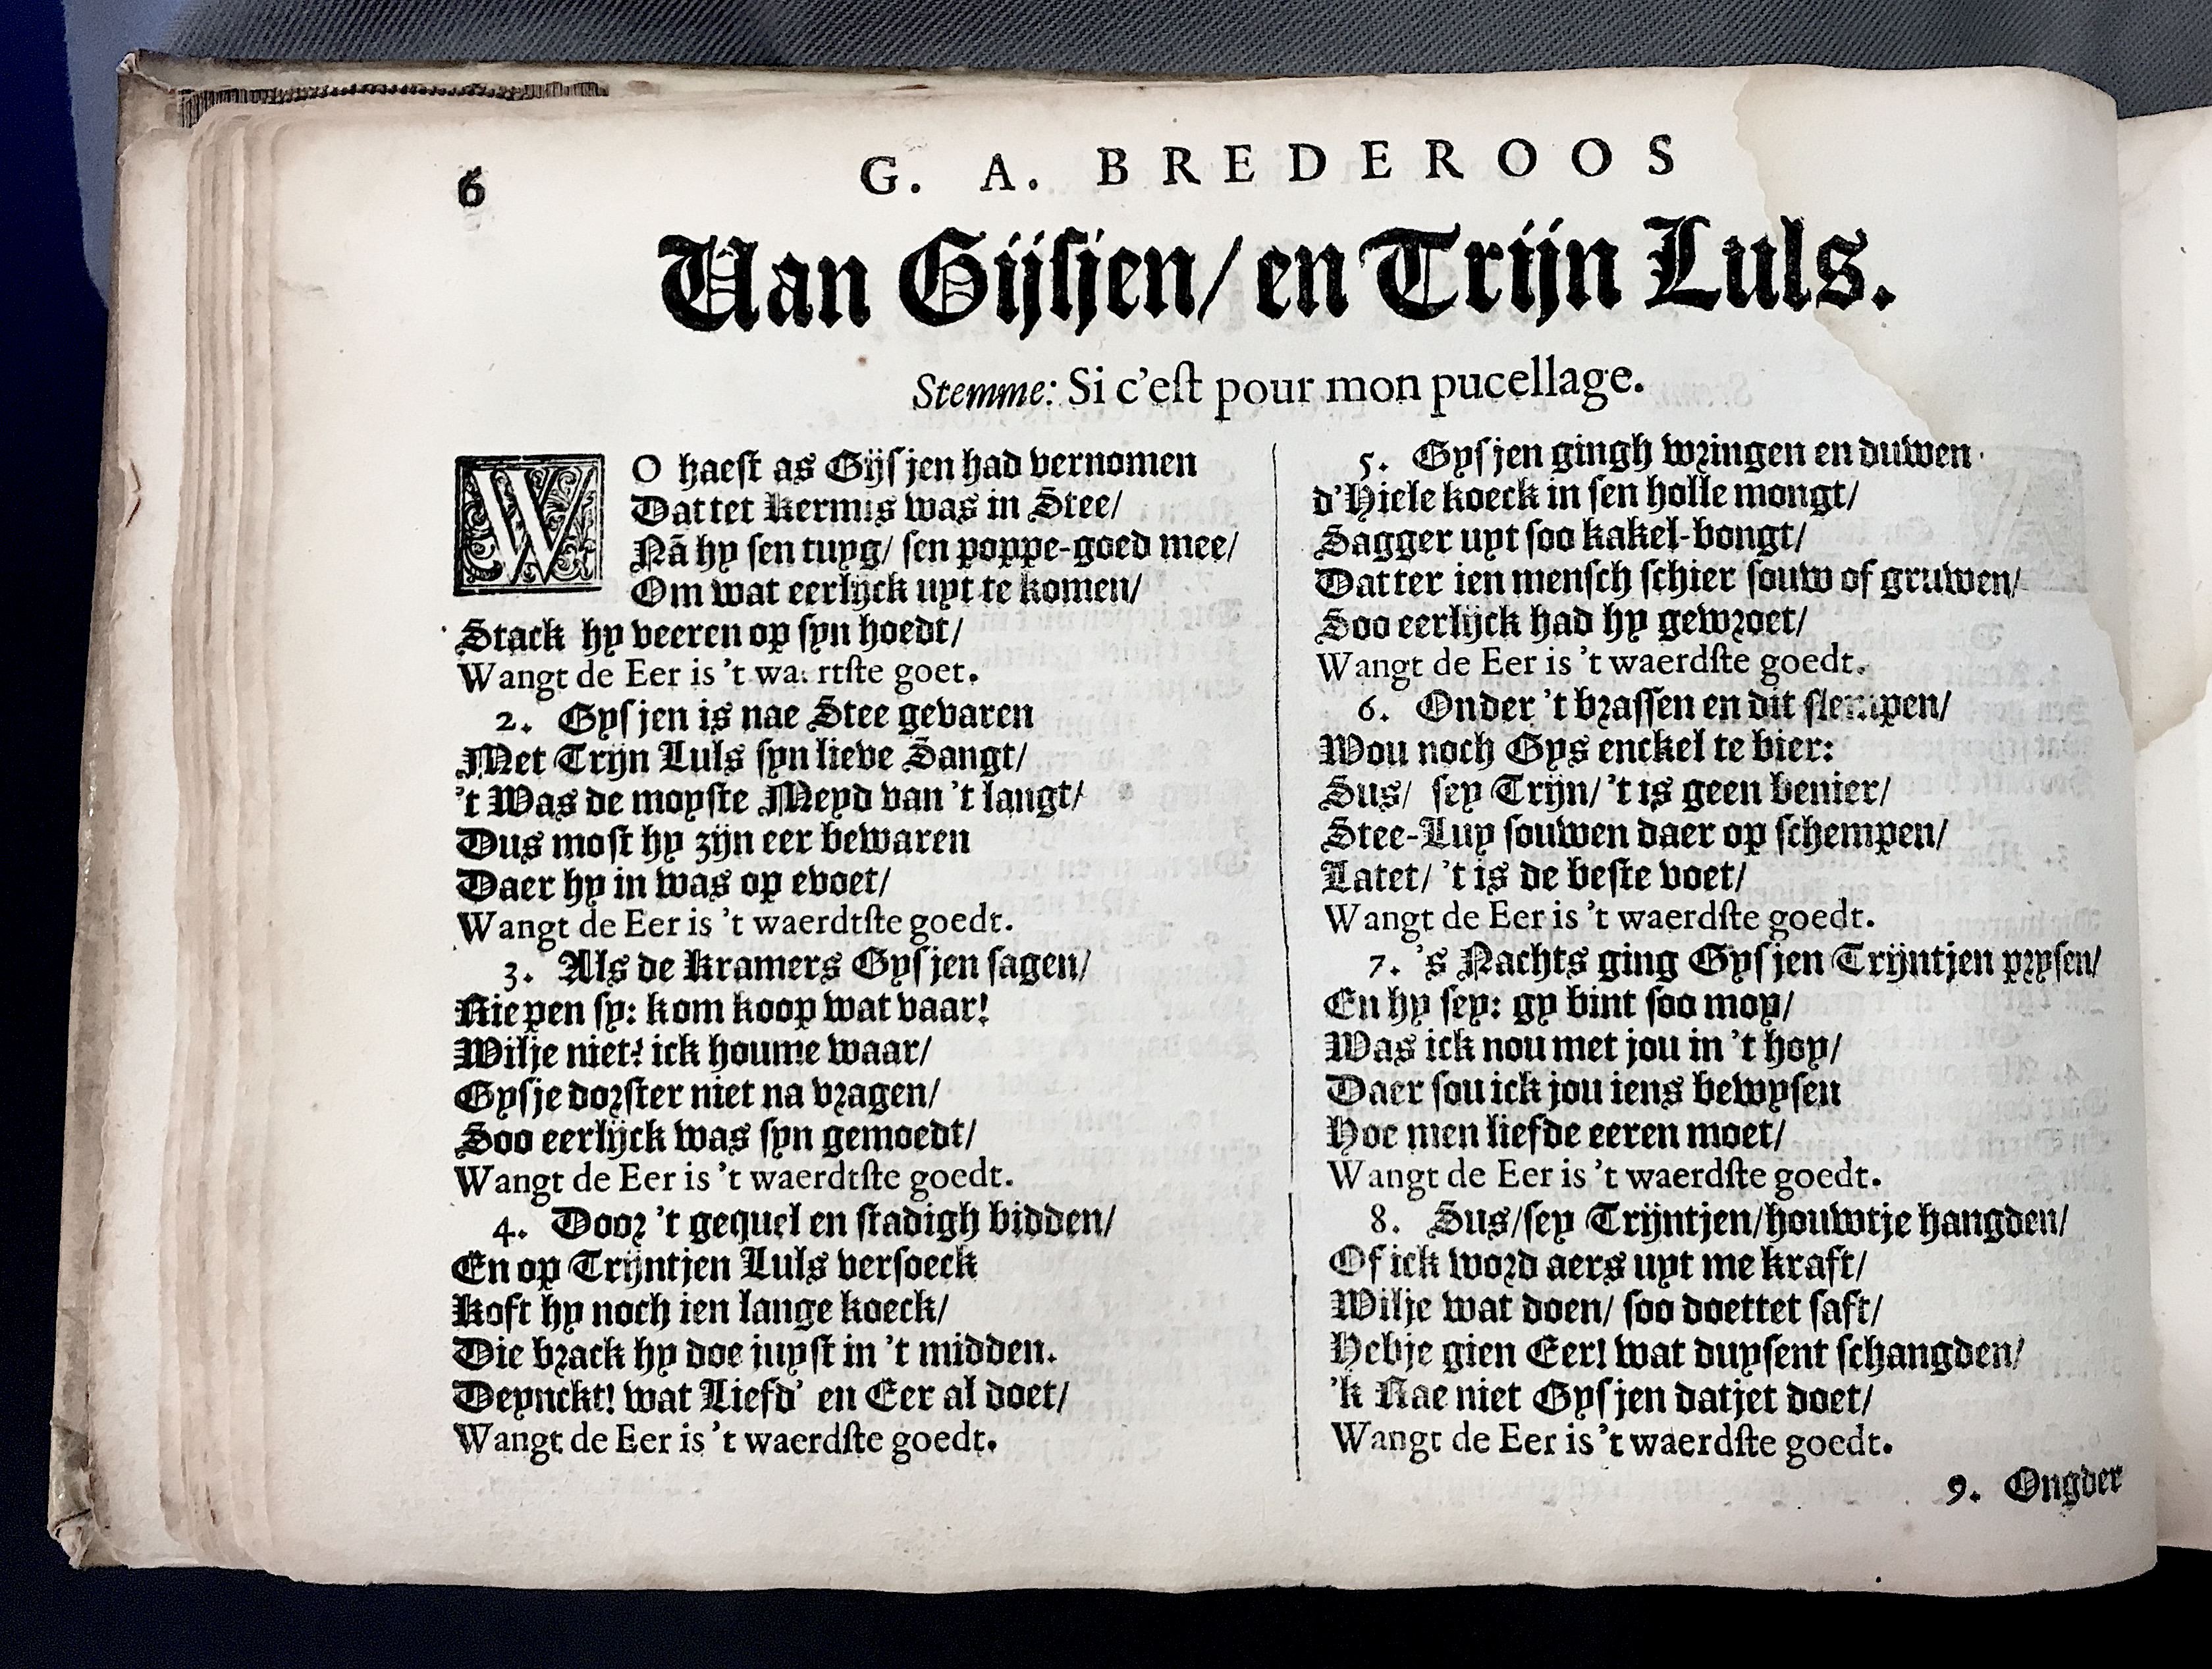 6
G. A. BREDEROOS
Van Gijsjen/ en Trijn Luls.
Stemme: Si c'est pour mon pucellage.
WO haest as Gijsjen had vernomen
Dattet Kermis was in Stee/
Nã hy sen tuyg/ sen poppe-goed mee/
Om wat eerlijck uyt te komen/
Stack hy veeren op syn hoedt/
Wangt de Eer is 't waertste goet.
2. Gysjen is nae Stee gevaren
Met Trijn Luls syn lieve Sangt/
't Was de moyste Meyd van 't langt/
Dus most hy zijn eer bewaren
Daer hy in was op evoet/
Wangt de Eer is 't waerdtste goedt.
3. Als de Kramers Gysjen sagen/
Riepen sy: kom koop wat vaar!
Wilje niet? ick houme waar/
Gysje dorster niet na vragen/
Soo eerlijck was syn gemoedt/
Wangt de Eer is 't waerdtste goedt.
4. Door 't gequel en stadigh bidden/
En op Trijntjen Luls versoeck
Koft hy noch ien lange koeck/
Die brack hy doe juyst in 't midden.
Deynckt! wat Liefd' en Eer al doet/
Wangt de Eer is 't waerdste goedt.
5. Gysjen gingh wringen en duwen
d'Hiele koeck in sen holle mongt/
Sagger uyt soo kakel-bongt/
Datter ien mensch schier souw of gruwen/
Soo eerlijck had hy gewroet/
Wangt de Eer is 't waerdste goedt.
6. Onder 't brassen en dit slempen/
Wou noch Gys enckel te bier:
Sus/ sey Trijn/ 't is geen benier/
Stee-Luy souwen daer op schempen/
Latet/ 't is de beste voet/
Wangt de Eer is 't waerdste goedt.
7. 's Nachts ging Gysjen Trijntjen prysen/
En hy sey: gy bint soo moy/
Was ick nou met jou in 't hoy/
Daer sou ick jou iens bewysen
Hoe men liefde eeren moet/
Wangt de Eer is 't waerdste goedt.
8. Sus/sey Trijntjen/houwtje hangden/
Of ick word aers uyt me kraft/
Wilje wat doen/ soo doettet saft/
Hebje gien Eer! wat duysent schangden/
'k Rae niet Gysjen datjet doet/
Wangt de Eer is 't waerdste goedt.
9. Ongder